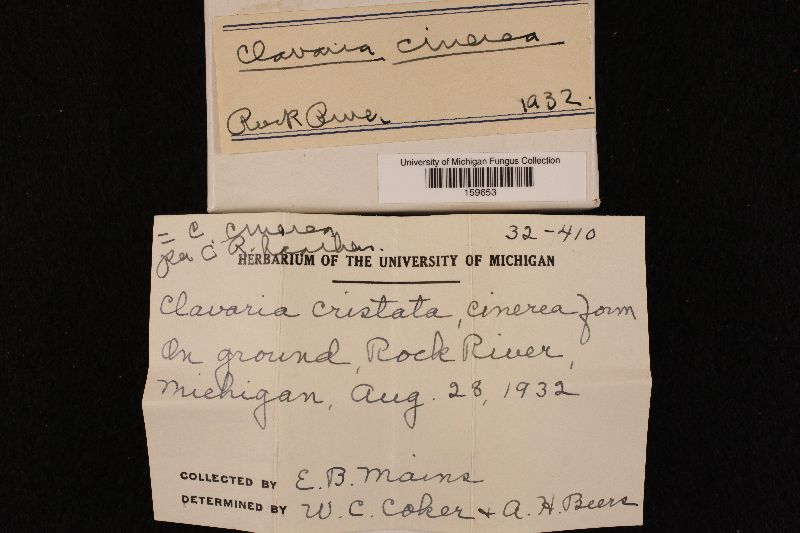 Clavaria cinerea
Rock River 1932.
University of Michigan Fungus Collection
159653
= C. cinerea 32-410
per C.
HERBARIUM OF THE UNIVERSITY OF MICHIGAN
Clavaria cristata, cinerea form
On ground, Rock River,
Michigan, Aug. 28, 1932
COLLECTED BY E. B. Mains
DETERMINED BY W. C. Coker + A. H. Beers